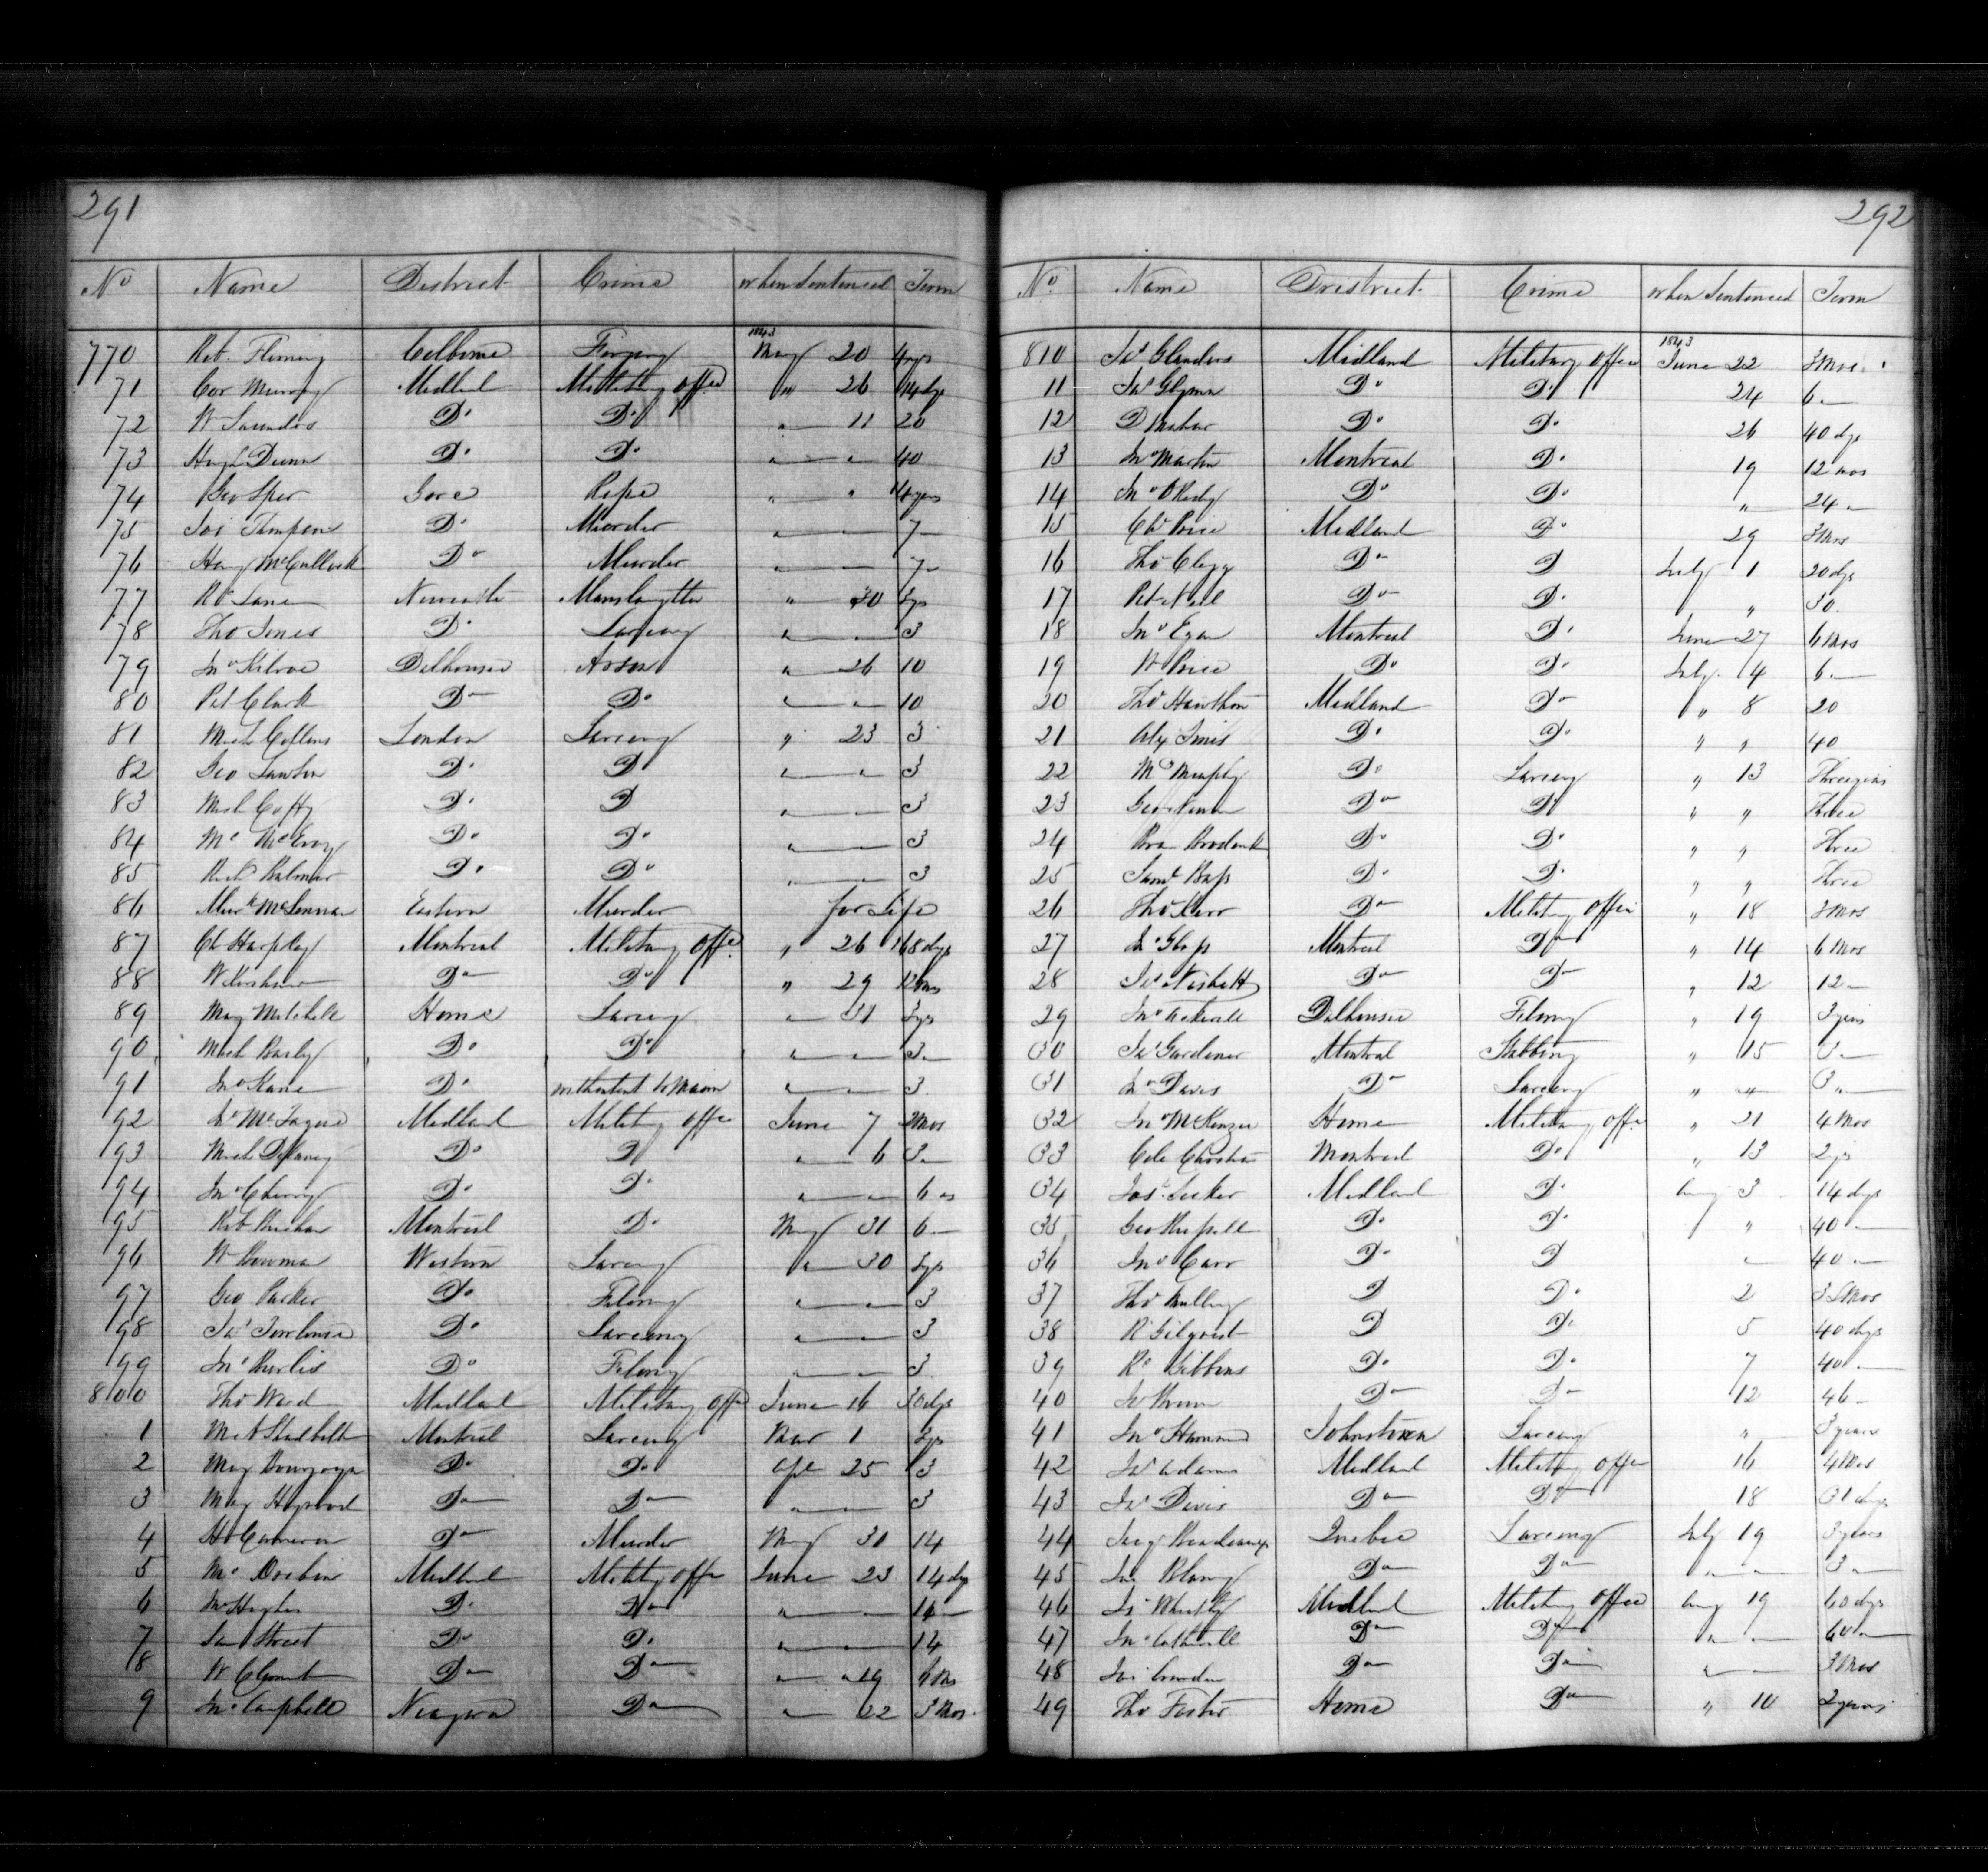 291
No Name District Crime when Sentenced Term
770 Rob. Fleming Colborne Forgery 1843 May 20 4 yrs
71 Cor Murray Midland Military offe „ 26 14 dys
72 W Saunders Do Do „ 11 20
73 Hugh Dunn Do Do „ „ 40
74 Geo Sper Gore Rape „ „ yrs
75 Jas Do Murder „ 7
76 McCullock Do Murder „ 7
77 Ro Lane Newcastle Manslaughter „ 30 3 ys
78 Tho Jones Do Larceny „ 3
79 Jno Kilroe Dalhousie Arson „ 26 10
80 Pet Clark Do Do „ „ 10
81 Mich Collins London Larceny „ 23 3
82 Geo Lawton Do D „ „ 3
83 Mich Coffy Do D „ 3
84 McEvoy Do Do „ 3
85 Rich Palmer Do Do „ 3
86 Murd McLennan Eastern Murder for Life
87 Ch Harpley Montreal Military offe „ 26 168 dys
88 W Kershaw Do Do „ 29 12 mos
89 Mary Mitchell Home Larceny „ 31 3 ys
90 Mich Do Do „ „ 3
91 Jno Kane Do with intent to Maim „ „ 3
92 Midland Military offe June 7 3 Mos
93 Mich Delaney Do D „ 6 3
94 Jno Cherry Do Do „ „ 6 „
95 Rob Montreal Do May 31 6
96 W Bowman Western Larceny „ 30 3 ys
97 Geo Parker Do Felony „ „ 3
98 Jas Tomlinson Do Larceny „ 3
99 Jno Do Felony „ 3
800 Tho Ward Midland Military offe June 16 30 dys
1 Montreal Larceny Mar 1 3 ys
2 Mary Do Do Apl 25 3
3 Mary Do Do „ „ 3
4 H Cameron Do Murder May 31 14
5 Midland Military offe June 23 14 dys
6 Hughes Do Do „ 14
7 Sam Street Do Do „ 14
8 W Clement Do Do „ 19
9 Jno Campbell Niagara Do „ 22 3 Mos.
292
No. Name District Crime when Sentenced Term
810 Jas Glanders Midland Military offen 1843 June 22 3 Mos
11 Jas Glynn Do Do 24 6
12 D Do Do 26 40 dys
13 Jno Martin Montreal Do 19 12 mos
14 Jno O Do Do „ 24
15 Chs Price Midland Do 29 3 Mos
16 Tho Clegg Do D July 1 20 dys
17 Pet Neil Do Do „ 30
18 Jno Egan Montreal Do June 27 6 Mos
19 W Price Do Do July 4 6
20 Tho Hawthorn Midland Do „ 8 20
21 Alex Innis Do Do „ „ 40
22 Murphy Do Larceny „ 13 Three years
23 Geo Do Do „ „ Three
24 Do Do „ „ Three
25 Saml Bass Do Do „ „ Three
26 Tho Kerr Do Military offen „ 18 3 Mos
27 Jno Glass Montreal Do „ 14 6 Mos
28 Jas Nesbett Do Do „ 12 12
29 Jno Dalhousie Felony „ 19 3 years
30 Jas Gardener Montreal Stabbing „ 15 3
31 Jno Davis Do Larceny „ „ 3 „
32 Jno McKenzie Home Military offe „ 21 4 Mos
33 Montreal Do „ 13 2 ys
34 Jos. Midland Do Aug 3 14 dys
35 Geo Russell Do Do „ 40
36 Jno Carr Do D „ 40
37 Tho D Do 2 3 Mos
38 R Gilqrist D Do 5 40 dys
39 Ro Gibbons Do Do 7 40
40 Do Do 12 46
41 Jno Johnstown Larceny „ 3 years
42 Jas Adams Midland Military offe 16 4 Mos
43 Jas Davis Do Do 18 31 dys
44 Quebec Larceny July 19 3 years
45 Do Do „ „ 3
46 Midland Military offen Aug 19 60 dys
47 Jno Do Do „ „ 60
48 Do Do „ 3 Mos
49 Tho Foster Home Do „ 10 2 years